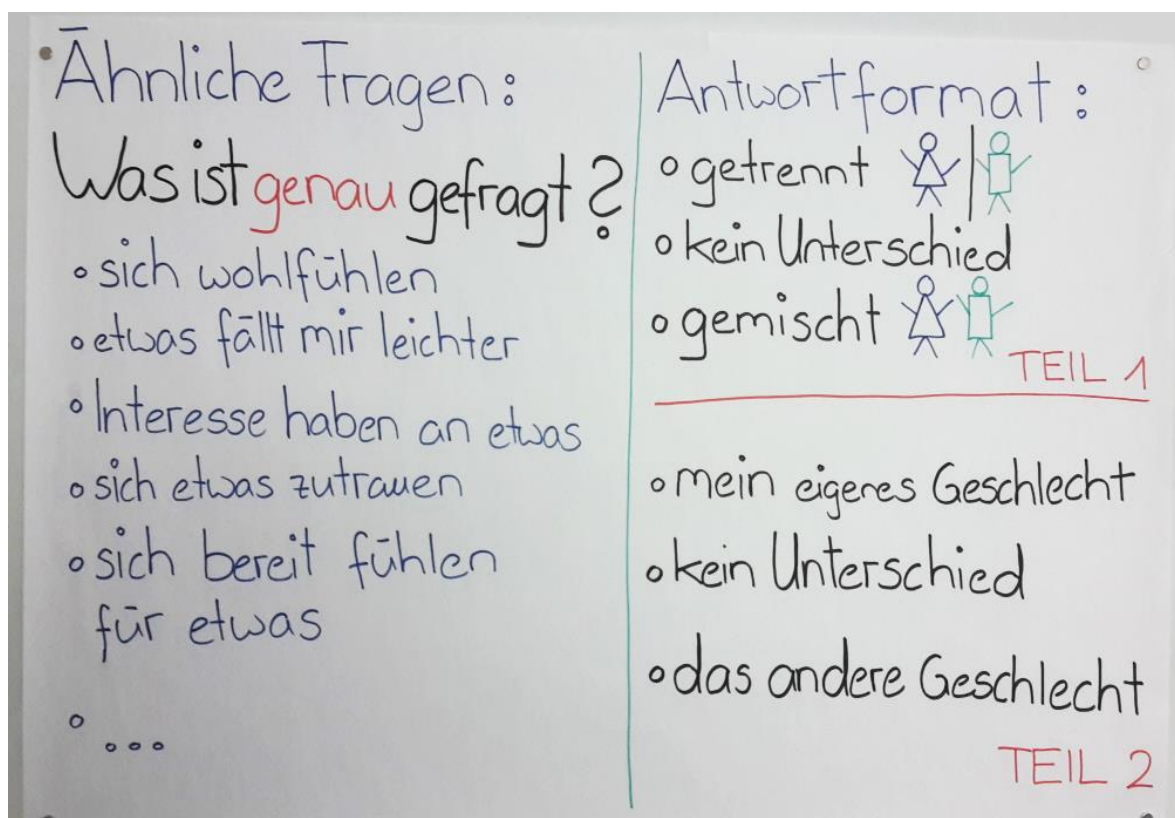 Ähnliche Fragen:
Was ist genau gefragt?
• sich wohlfühlen
• etwas fällt mir leichter
• Interesse haben an etwas
• sich etwas zutrauen
• sich bereit fühlen
für etwas
• ...
Antwortformat:
• getrennt
• kein Unterschied
• gemischt
TEIL 1
• mein eigenes Geschlecht
• kein Unterschied
• das andere Geschlecht
TEIL 2